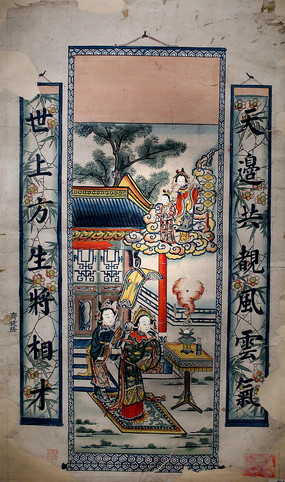 天邊共觀風雲氣
世上方生將相才